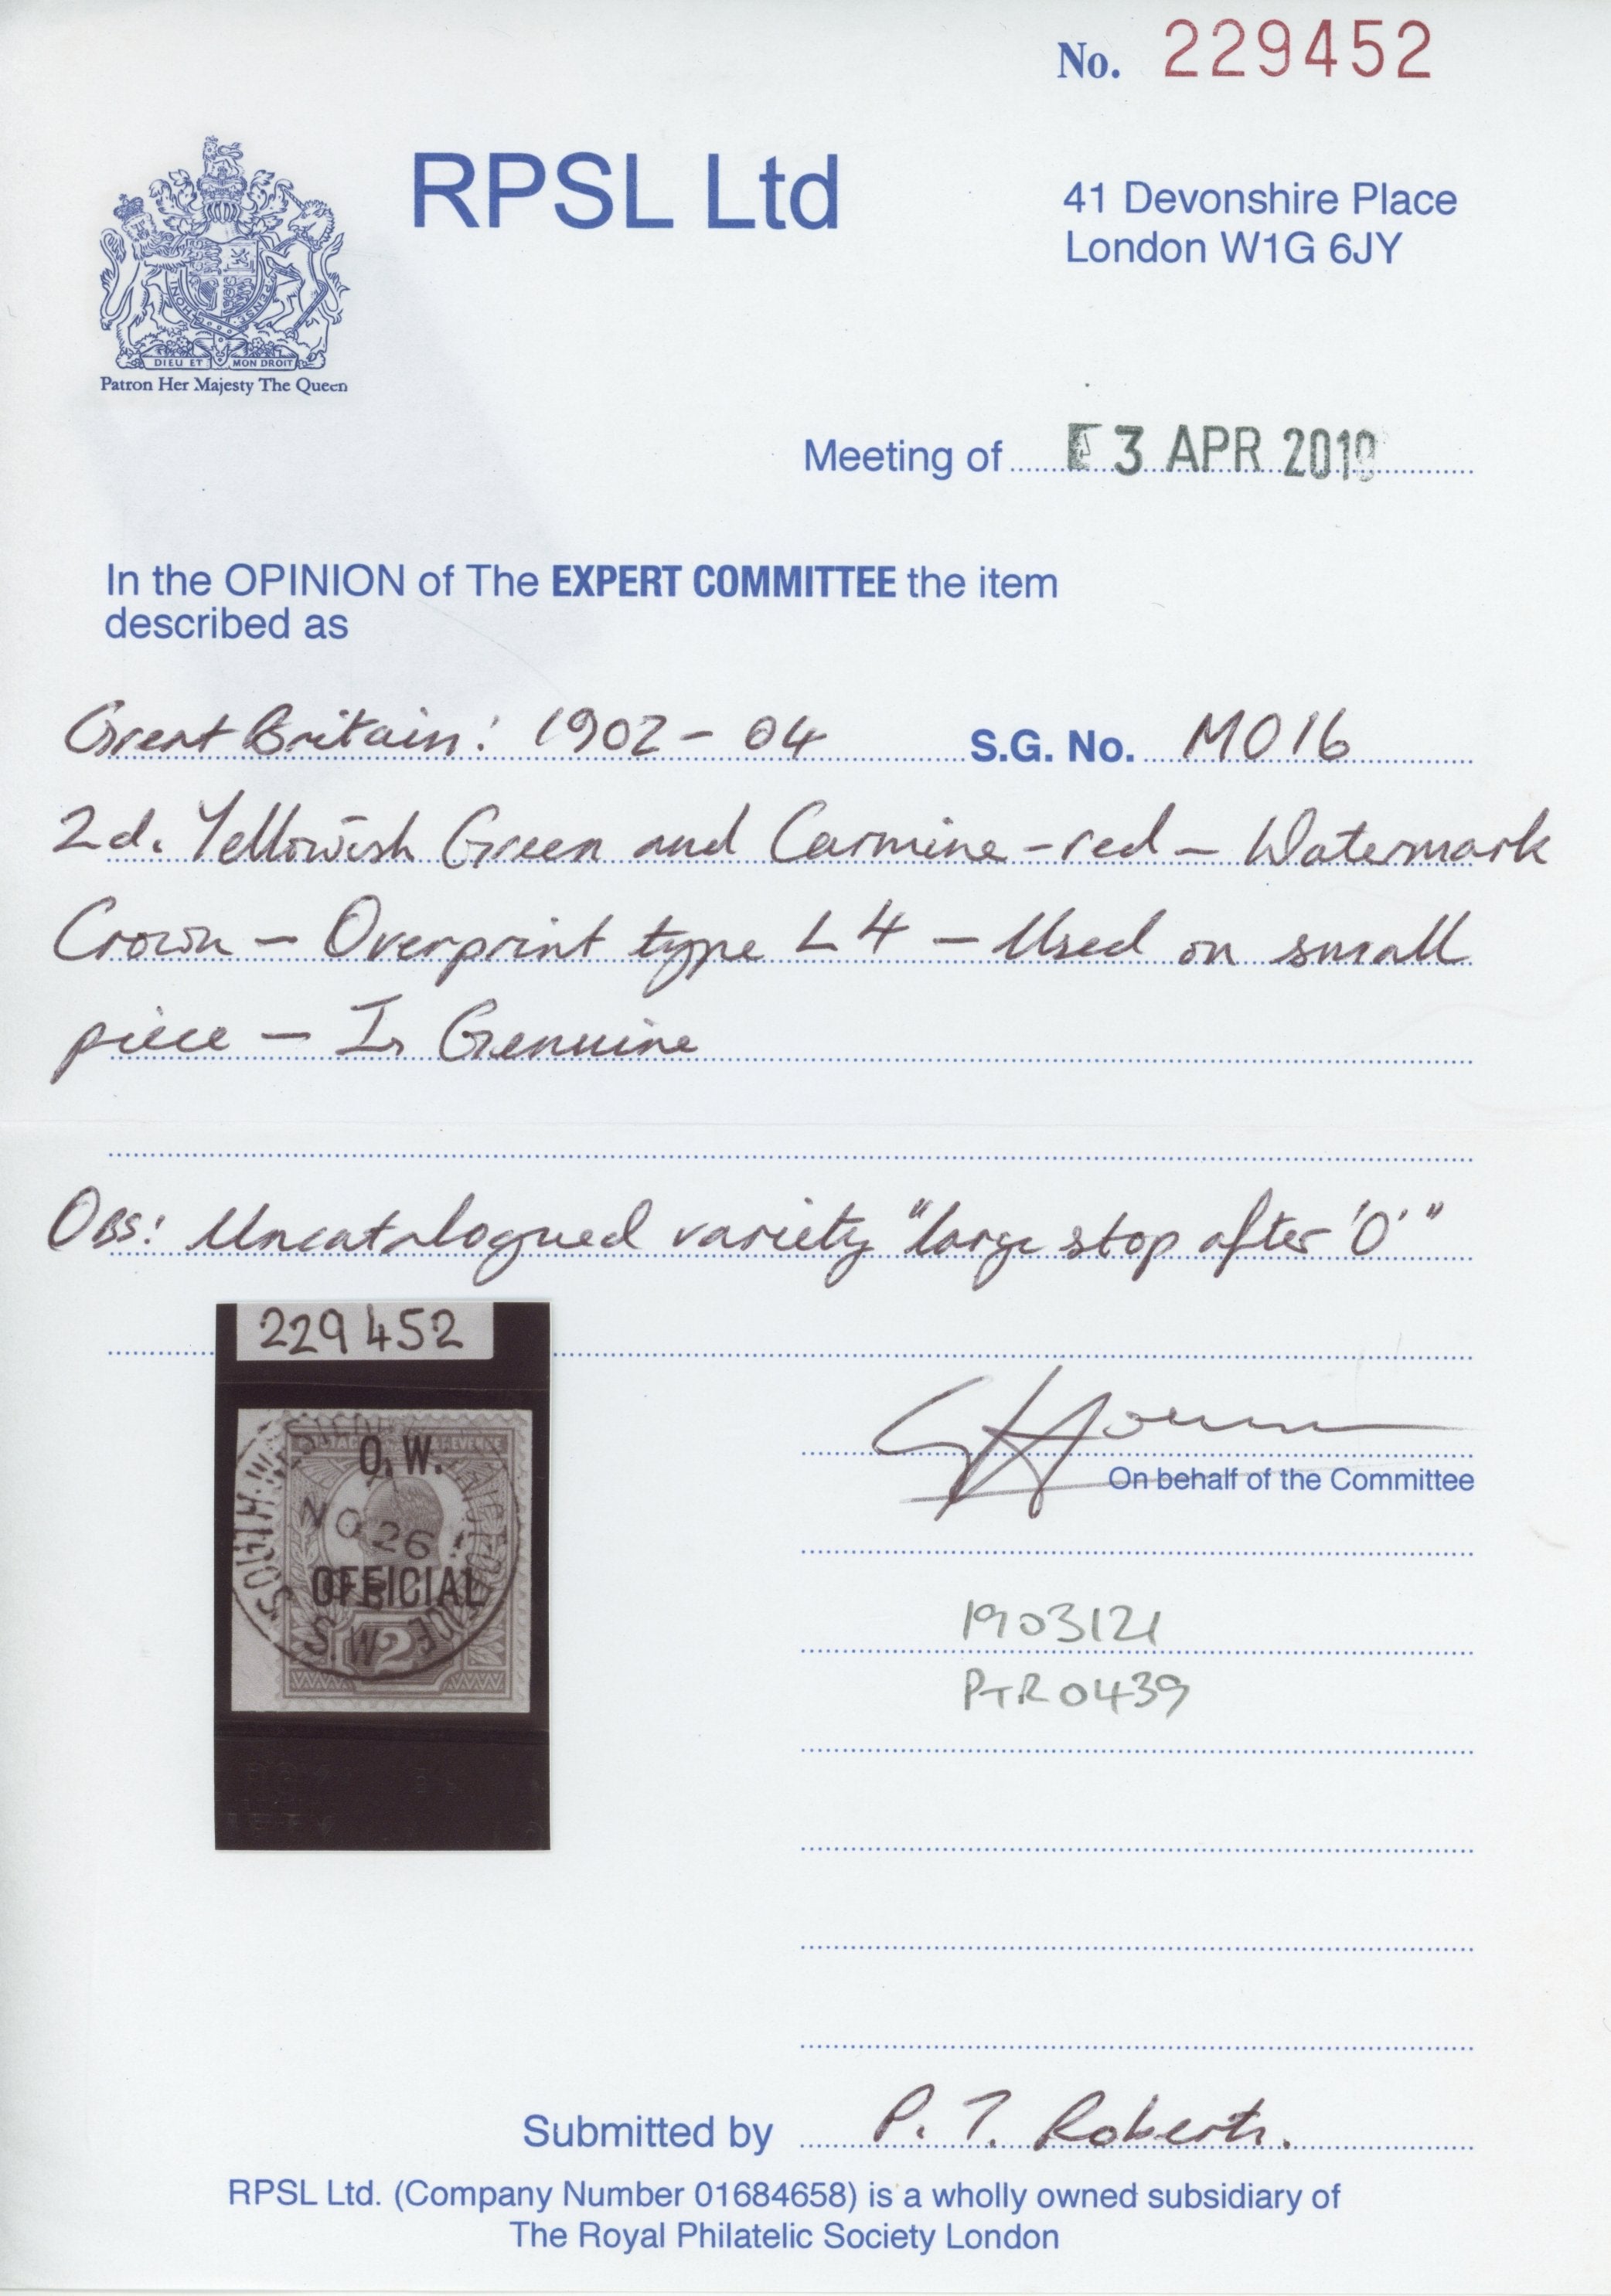 No. 229452
RPSL Ltd
41 Devonshire Place
London W1G 6JY
DIEU ET MON DROIT
Patron Her Majesty The Queen
Meeting of 3 APR 201
In the OPINION of The EXPERT COMMITTEE the item
described as
Great Britain: 1902-04 S.G. No. MO16
2d. Yellowish Green and Carmine-red - Watermark
Crown - Overprint type L4 - Used on small
piece - Is Genuine
Obs: Uncatalogued variety "large stop after 'O'"
229452
POSTAGE REVENUE
O.W.
SOUTH
NO 26
OFFICIAL
S.W
2
On behalf of the Committee
1903121
PTR0439
Submitted by P. T. Roberts.
RPSL Ltd. (Company Number 01684658) is a wholly owned subsidiary of
The Royal Philatelic Society London